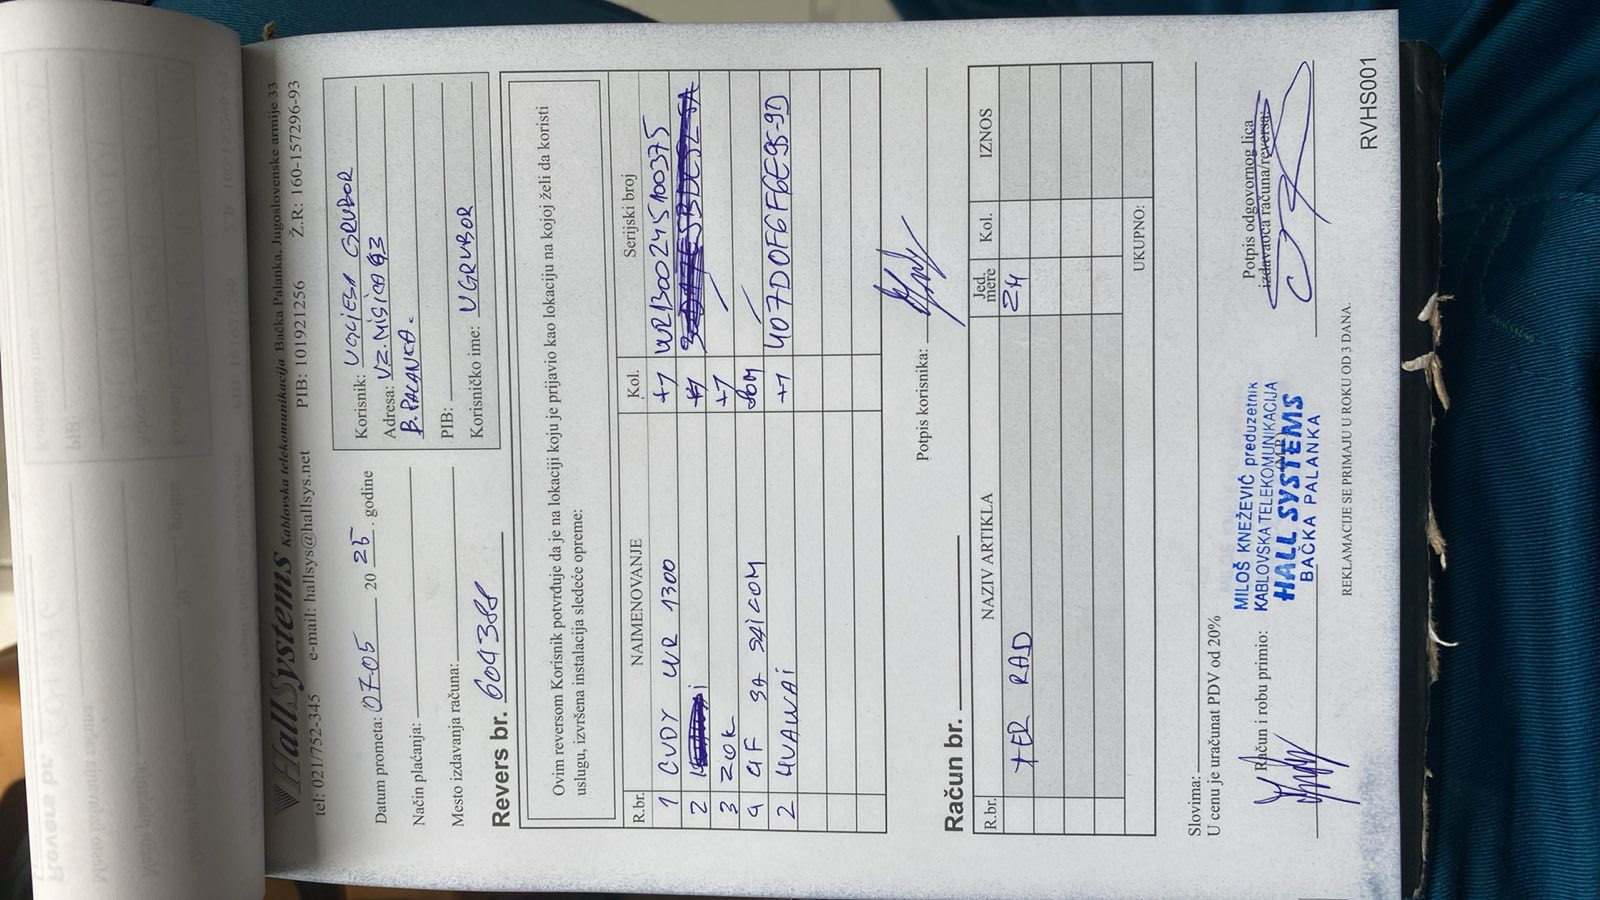 HallSystems Kablovska telekomunikacija Bačka Palanka, Jugoslovenske armije 33
tel: 021/752-345 e-mail: hallsys@hallsys.net PIB: 101921256 Ž.R: 160-157296-93
Datum prometa: 07.05 20 25. godine
Način plaćanja:
Mesto izdavanja računa:
Revers br. 604388
Korisnik: UGLJESA GRUBOR
Adresa: VZ. MIŠIĆA 93
B. PALANKA.
PIB:
Korisničko ime: UGRUBOR
Ovim reversom Korisnik potvrđuje da je na lokaciji koju je prijavio kao lokaciju na kojoj želi da koristi
uslugu, izvršena instalacija sledeće opreme:
R.br. NAIMENOVANJE Kol. Serijski broj
1 CUDY WR 1300 +1 WR1300245100375
2
3 ZOK +1 /
4 GF SA SAJLOM 80M /
2 HUAWAI +1 407D0F6F6E95-9D
Potpis korisnika:
Račun br.
R.br. NAZIV ARTIKLA Jed. mere Kol. IZNOS
TER RAD 2H
UKUPNO:
Slovima:
U cenu je uračunat PDV od 20%
Račun i robu primio:
(M.P.)
MILOŠ KNEŽEVIĆ preduzetnik
KABLOVSKA TELEKOMUNIKACIJA
HALL SYSTEMS
BAČKA PALANKA
Potpis odgovornog lica
izdavaoca računa/reversa:
REKLAMACIJE SE PRIMAJU U ROKU OD 3 DANA.
RVHS001